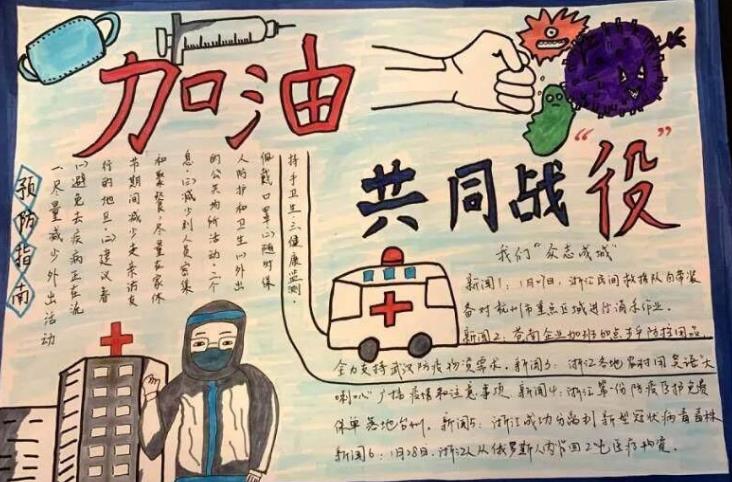 加油
共同战“役”
预防指南
一、尽量减少外出活动
(1)避免去疾病正在流
行的地区。(2)建议春
节期间减少走亲访友
和聚餐,尽量在家休
息。(3)减少到人员密集
的公共场所活动。二个
人防护和卫生(1)外出
佩戴口罩(2)随时保
持手卫生三、健康监测。
我们“众志成城”
新闻1:1月27日,浙江民间救援队自带装
备对杭州市重点区域进行消杀作业。
新闻2、苍南企业加班加点生产防护用品,
全力支持武汉防疫物资需求。新闻3:浙江各地农村用
喇叭广播疫情和注意事项 新闻4:浙江 防疫 免费
保单落地台州。新闻5:浙江成功分离到新型冠状病毒毒株
新闻6:1月28日,浙江人从俄罗斯人肉背回 医疗物资。